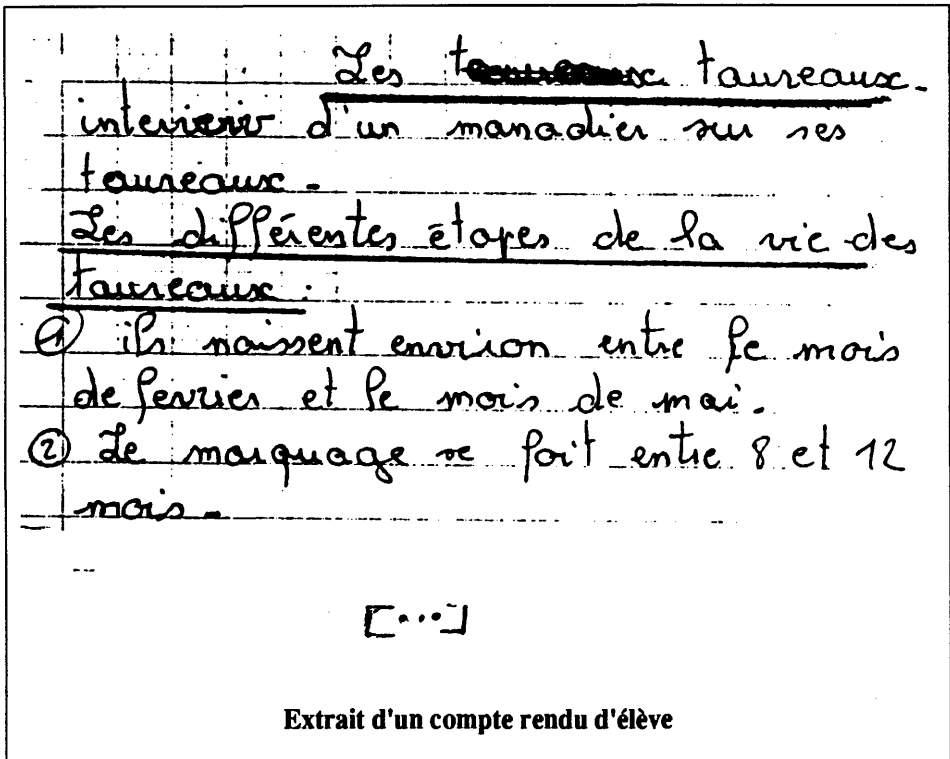 Les taureaux.
interview d'un manadier sur ses
taureaux.
Les différentes étapes de la vie des
taureaux :
① ils naissent environ entre le mois
de fevrier et le mois de mai.
② Le marquage se fait entre 8 et 12
mois.
[...]
Extrait d'un compte rendu d'élève